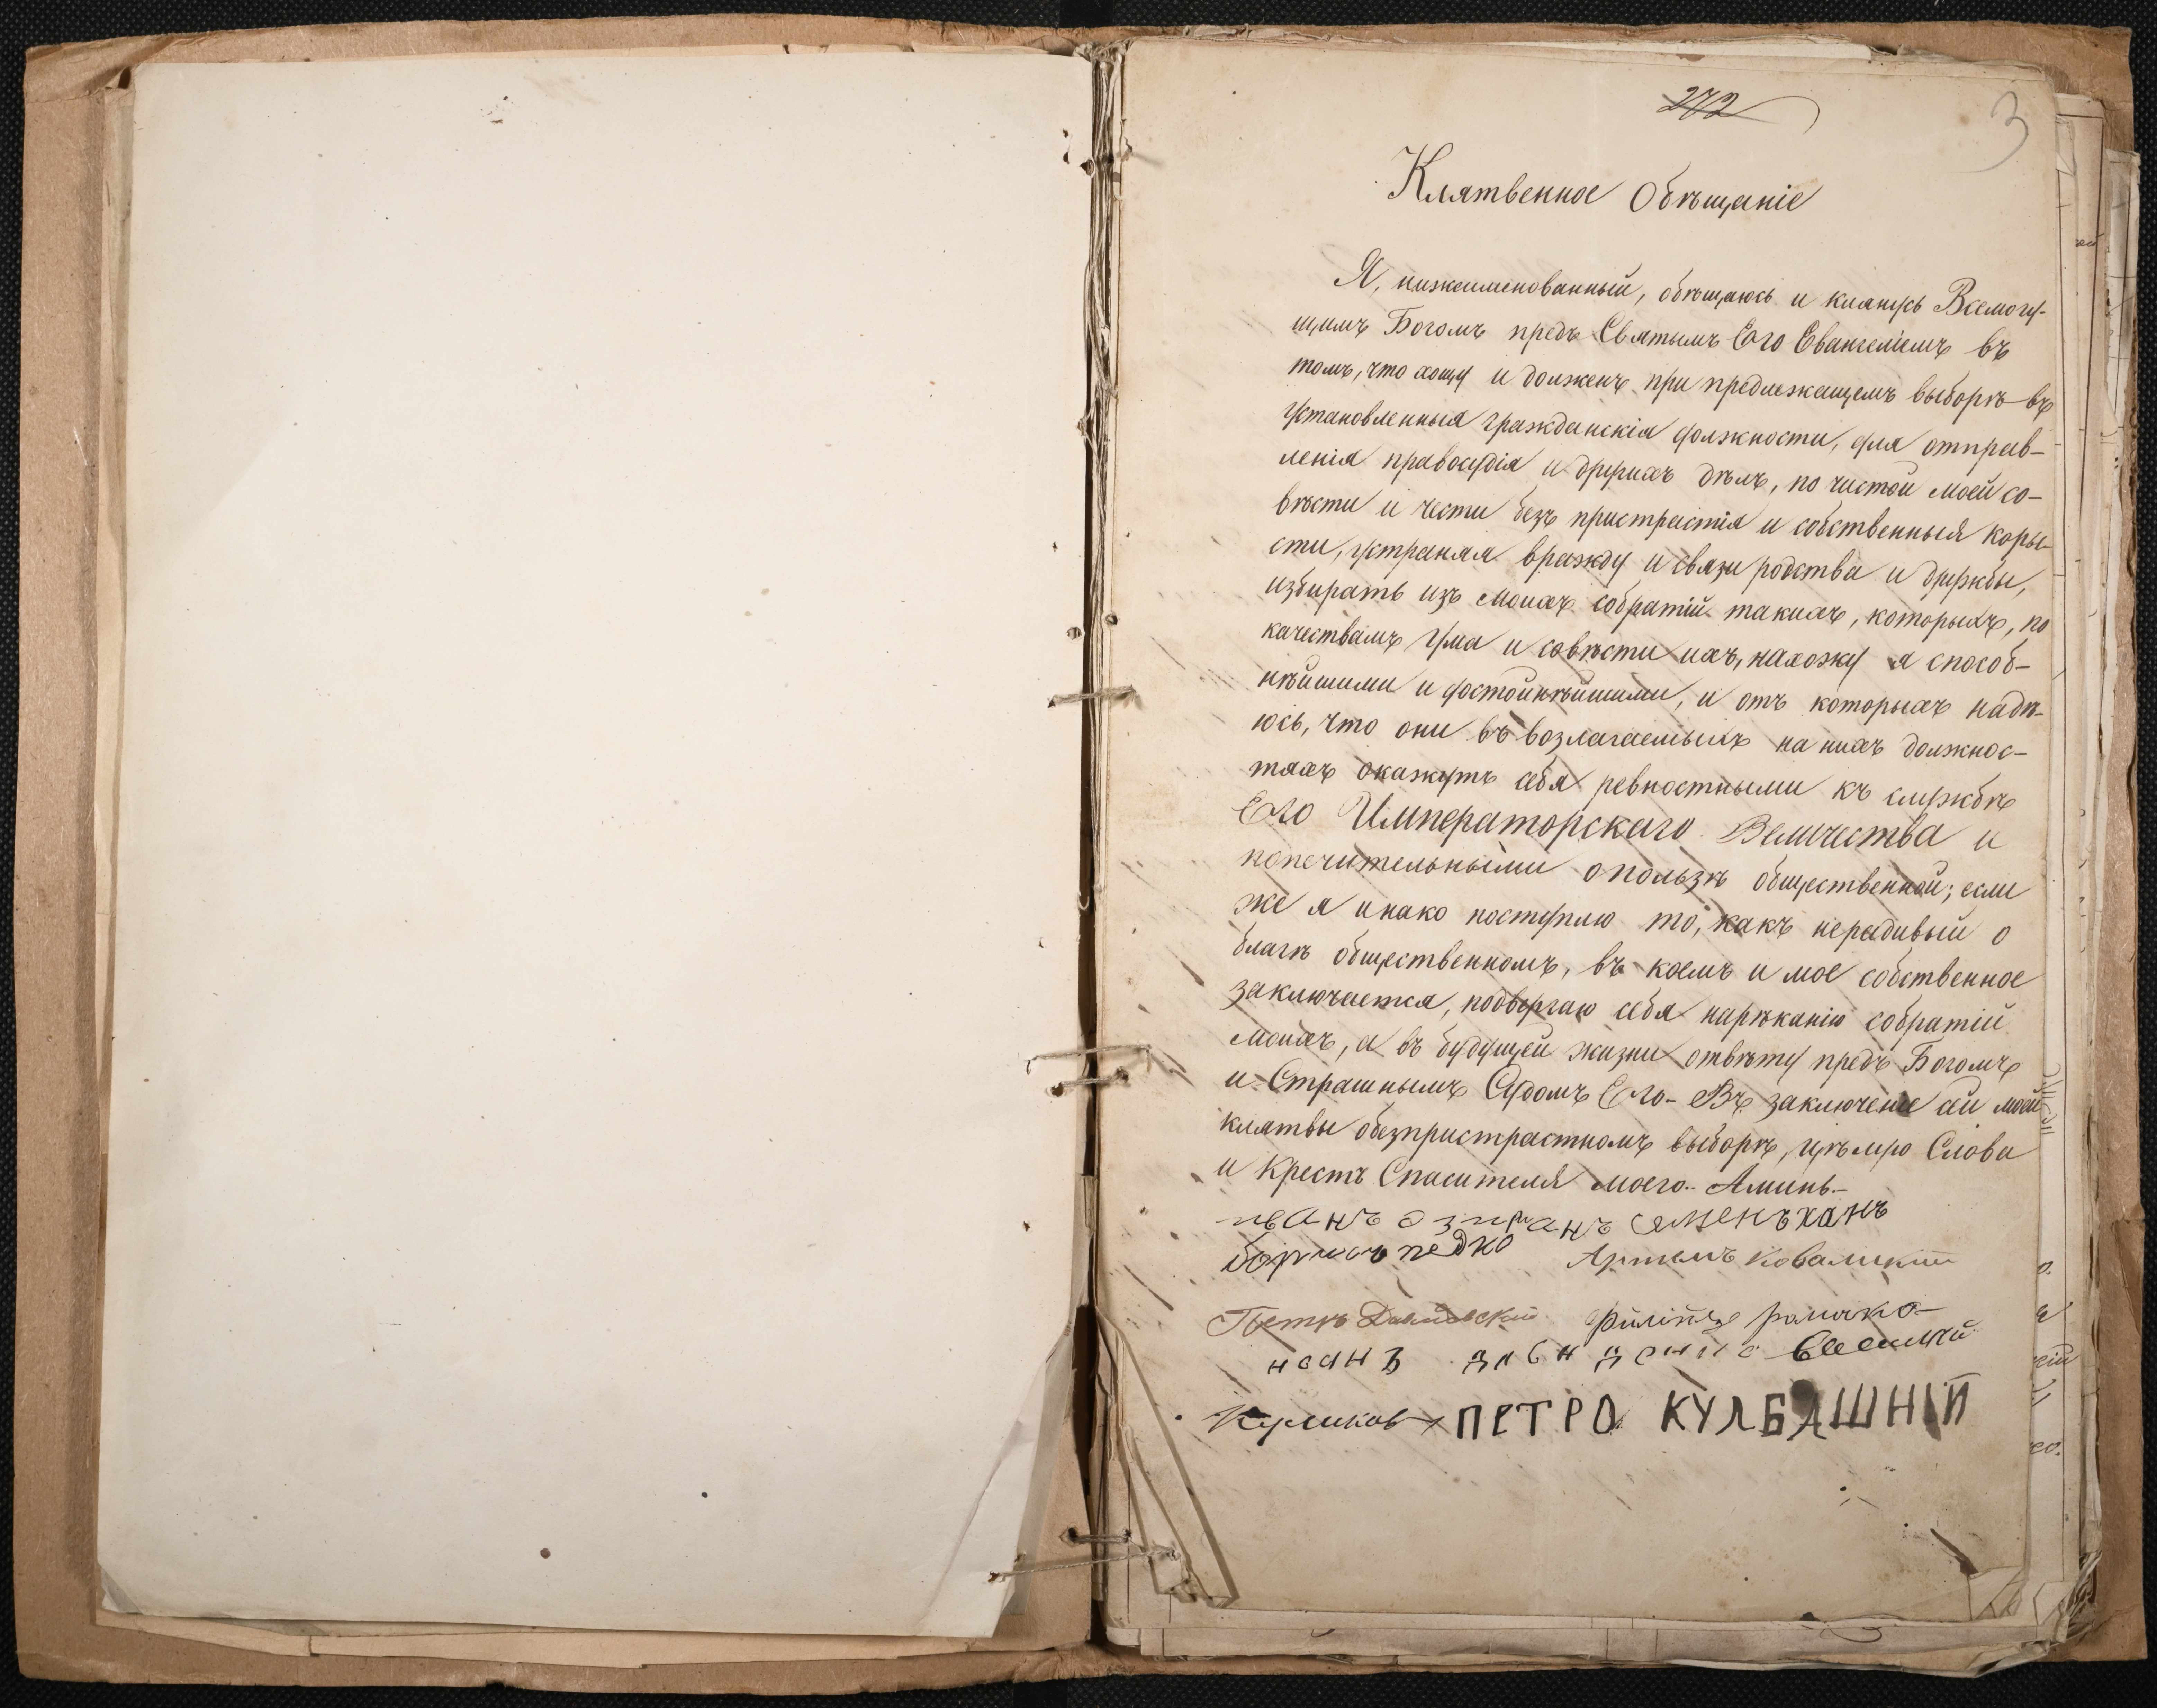 272
3
Клятвенное Обѣщаніе
Я, нижеименованный, обѣщаюсь и клянусь Всемогу-
щимъ Богомъ предъ Святымъ Его Евангеліемъ въ
томъ, что хощу и долженъ при предлежащемъ выборѣ въ
установленныя гражданскія должности, для отправ-
ленія правосудія и другихъ дѣлъ, по чистой моей со-
вѣсти и чести безъ пристрастія и собственныя коры-
сти, устраняя вражду и связи родства и дружбы,
избирать изъ моихъ собратій такихъ, которыхъ, по
качествамъ ума и совѣсти ихъ, нахожу я способ-
нѣйшими и достойнѣйшими, и отъ которыхъ надѣ-
юсь, что они въ возлагаемыхъ на нихъ должнос-
тяхъ окажутъ себя ревностными къ службѣ
Его Императорскаго Величества и
попечительными о пользѣ общественной; если
же я инако поступлю то, какъ нерадивый о
благѣ общественномъ, въ коемъ и мое собственное
заключается, подвергаю себя нарѣканію собратій
моихъ, а въ будущей жизни отвѣту предъ Богомъ
и Страшнымъ Судомъ Его- Въ заключеніе сей моей
клятвы обезпристрастномъ выборѣ, цѣлую Слова
и Крестъ Спасителя моего. Аминь.-
иванъ семенъ ханъ
педко Артемъ Ковалискій
Петръ Филіпъ
Василій
Куликовъ ПЕТРО КУЛБАШНІЙ